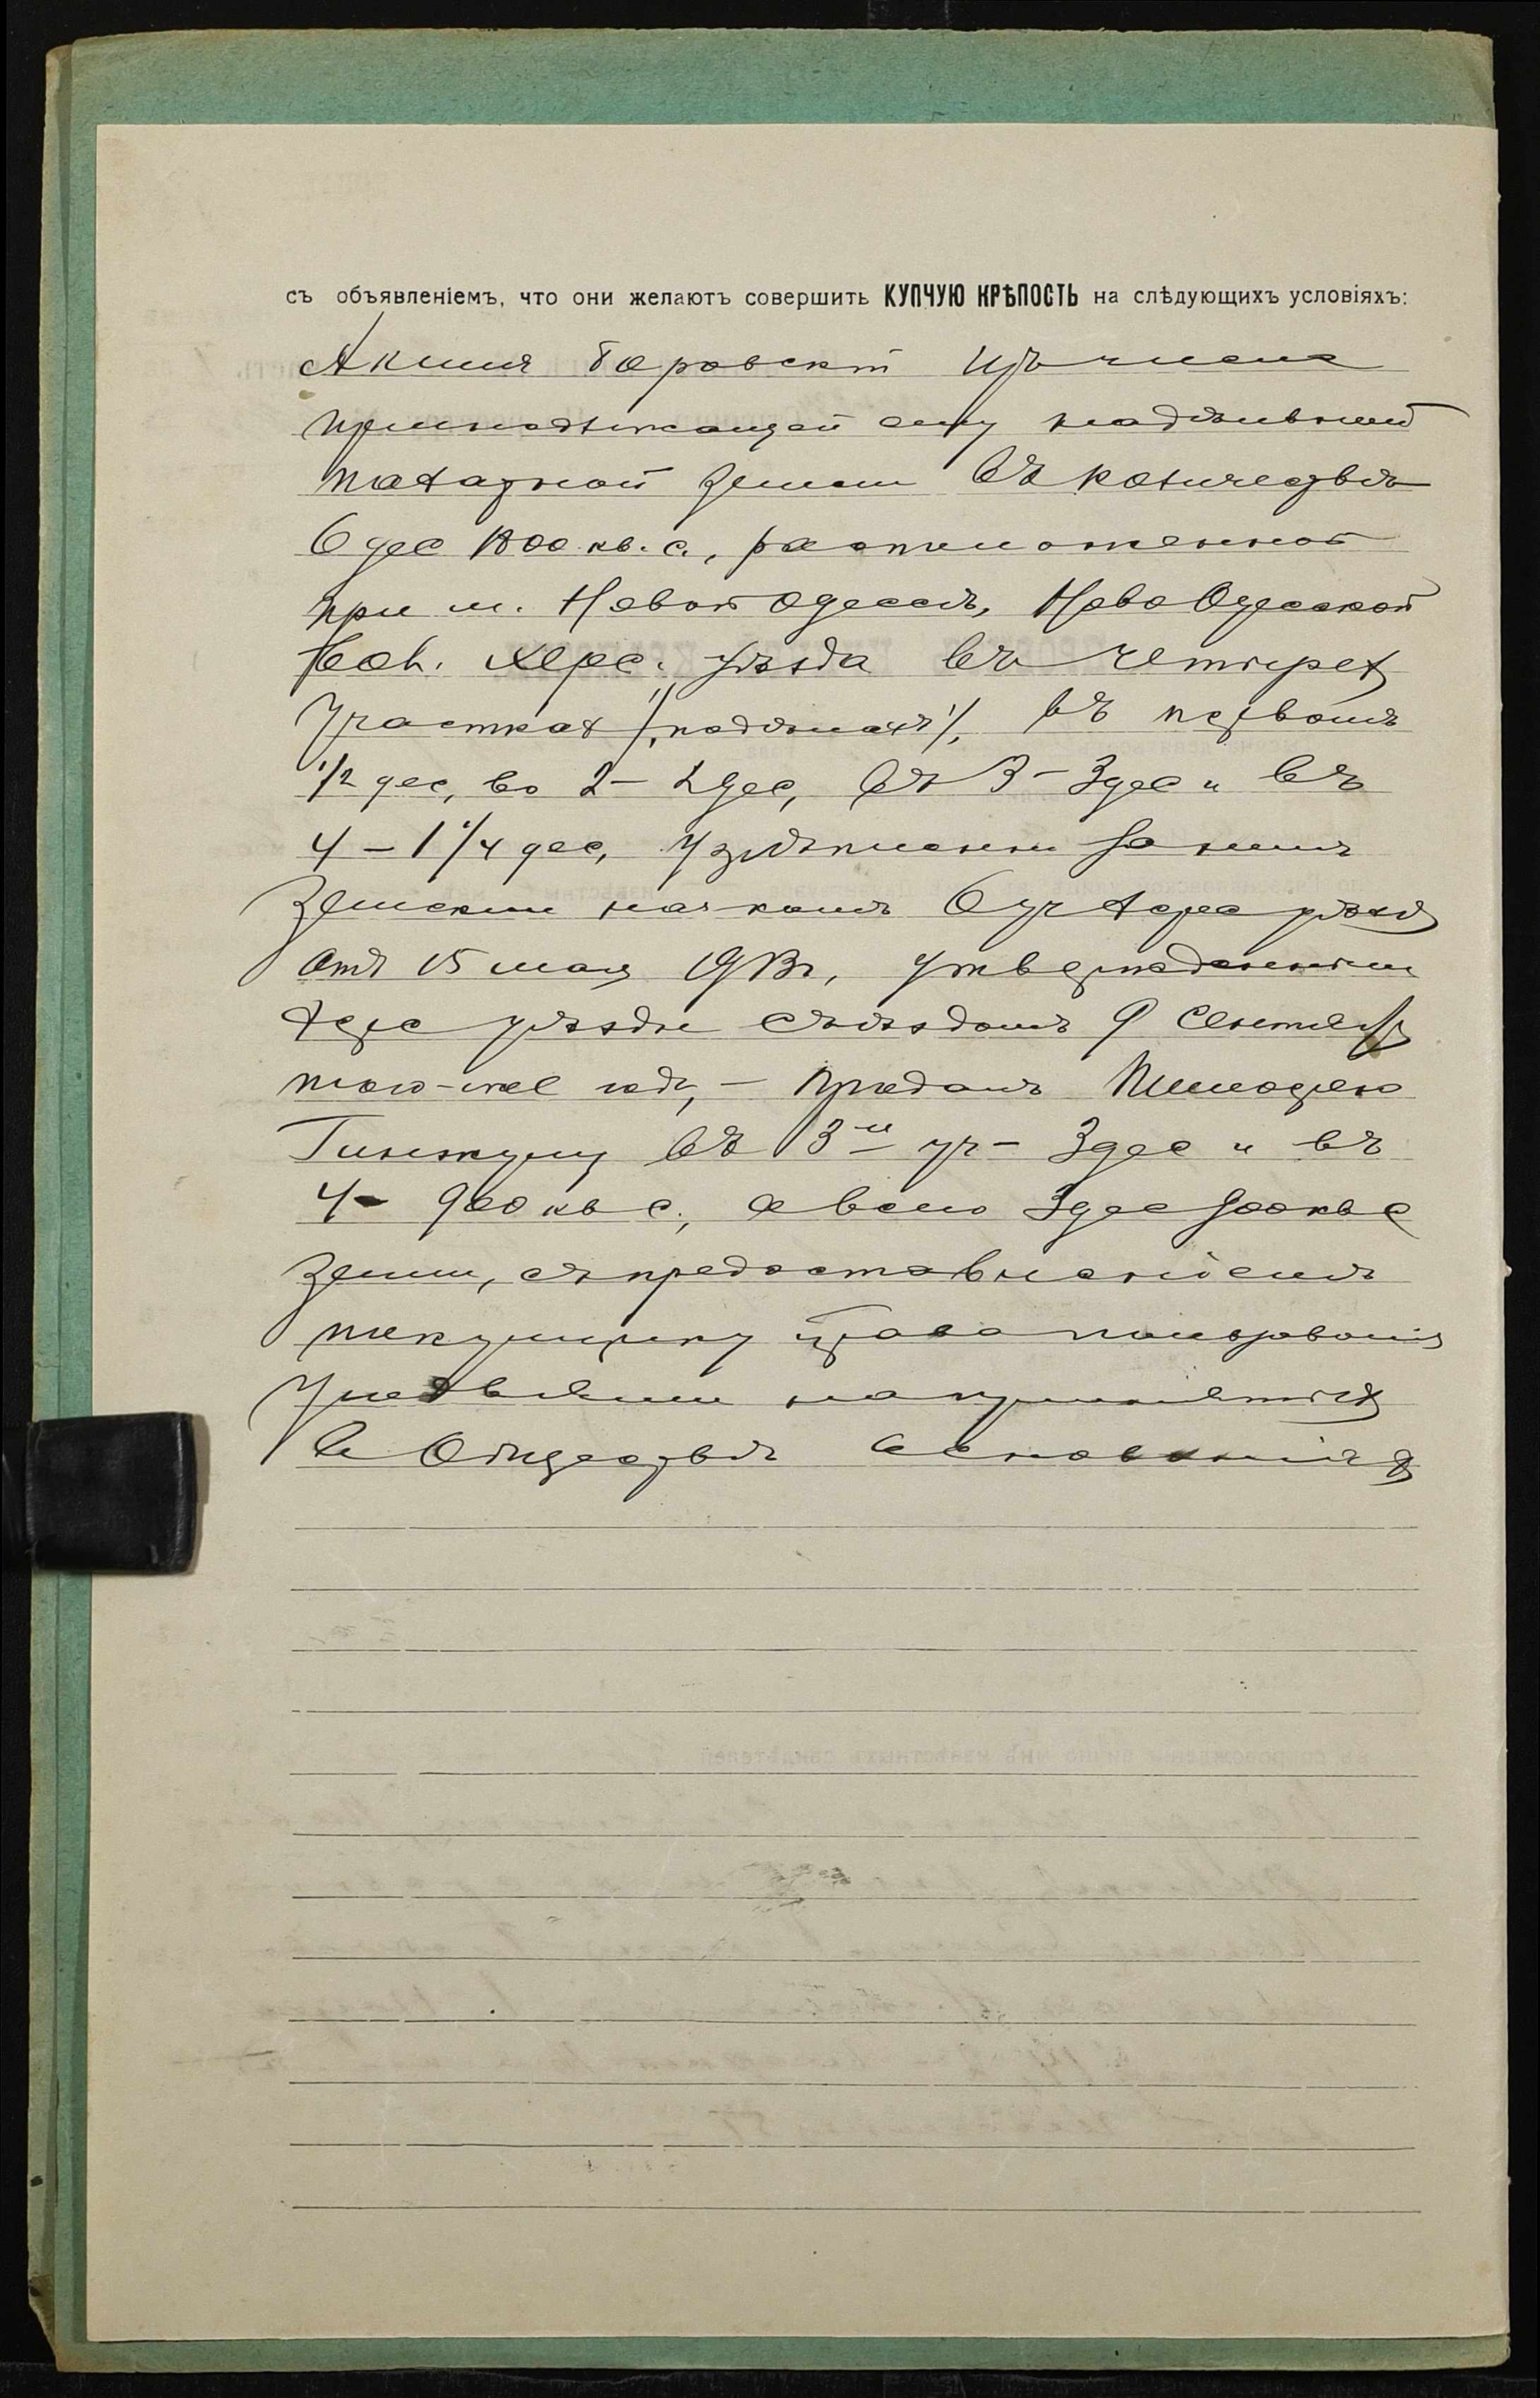 съ объявленіемъ, что они желаютъ совершить КУПЧУЮ КРѢПОСТЬ на слѣдующихъ условіяхъ:
Акимъ Боровскій изъ числа
принадлежащей ему надѣльной
пахатной земли въ количествѣ
6 дес 1800 кв. с., расположенной
при м. Новой Одессѣ, Ново Одесской
вол. Херс. уѣзда въ четырех
участках /"подѣлахъ"/, въ первомъ
1/2 дес, во 2 – 2 дес, въ 3 – 3 дес и въ
4 – 1 1/4 дес, укрѣпленн за нимъ
Земским нач-комъ 6 уч Херс уѣзда
отъ 15 мая 913г, утвержденным
Херс уѣздн съѣздомъ 9 Сентябр
того-же года, – продалъ Тимофею
Гинжулу въ 3-м уч – 3 дес и въ
4 – 900 кв с., а всего 3 дес 900 кв с
земли, съ предоставленіемъ
покупщику права пользованія
на принятых
въ Обществѣ основаніях